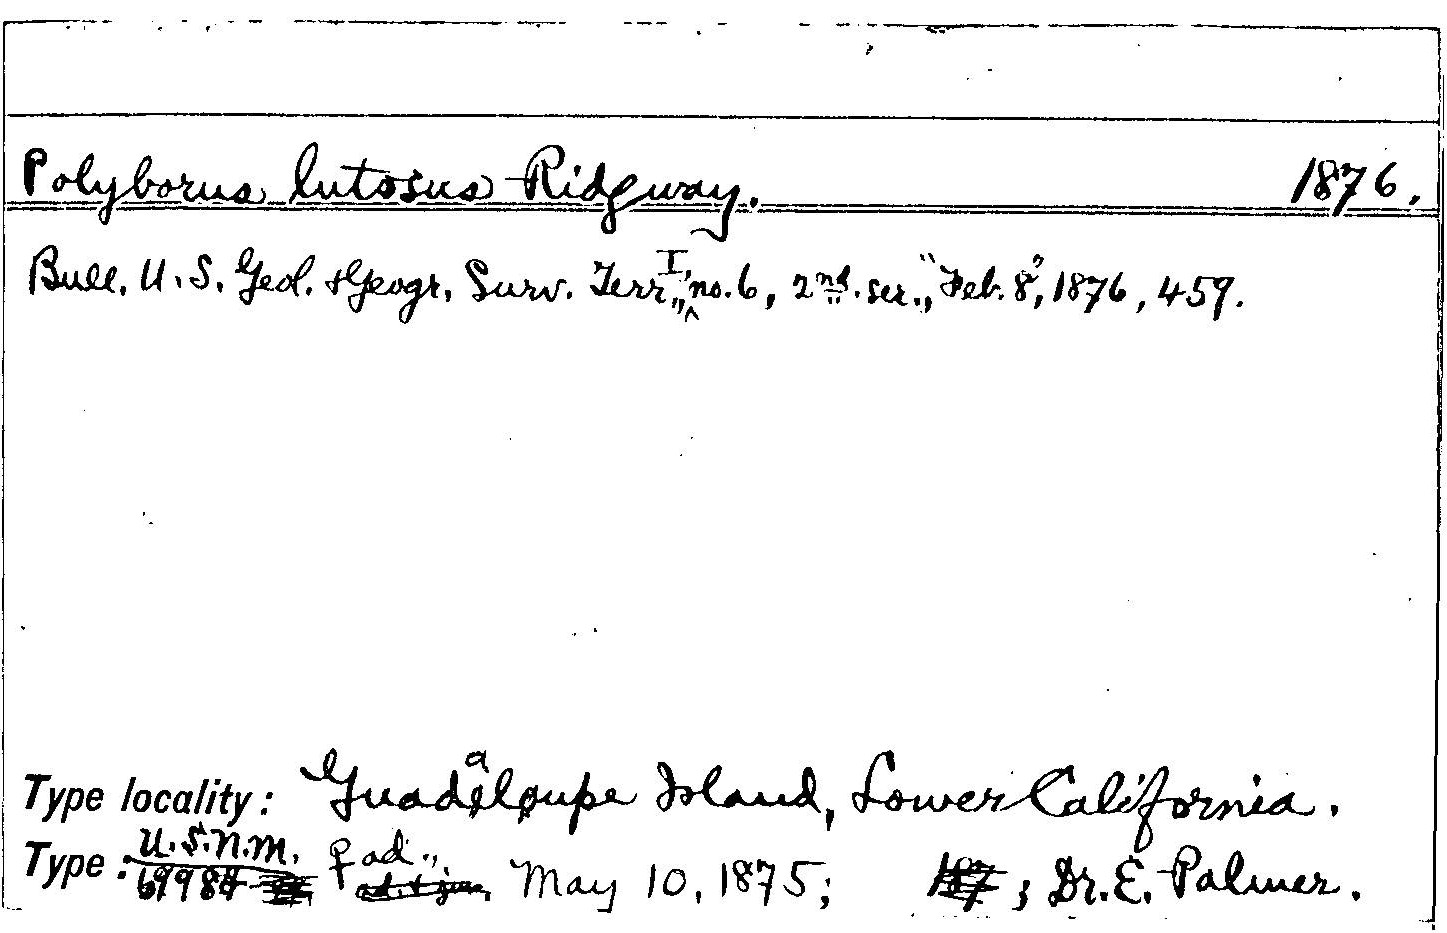 Polyborus lutosus Ridgway. 1876.
Bull. U. S. Geol. & Geogr. Surv. Terr., I, no. 6, 2nd. ser., "Feb. 8", 1876, 459.
Type locality: Guadaloupe Island, Lower California.
Type: U.S.N.M. ♀ ad., May 10, 1875; ; Dr. E. Palmer.